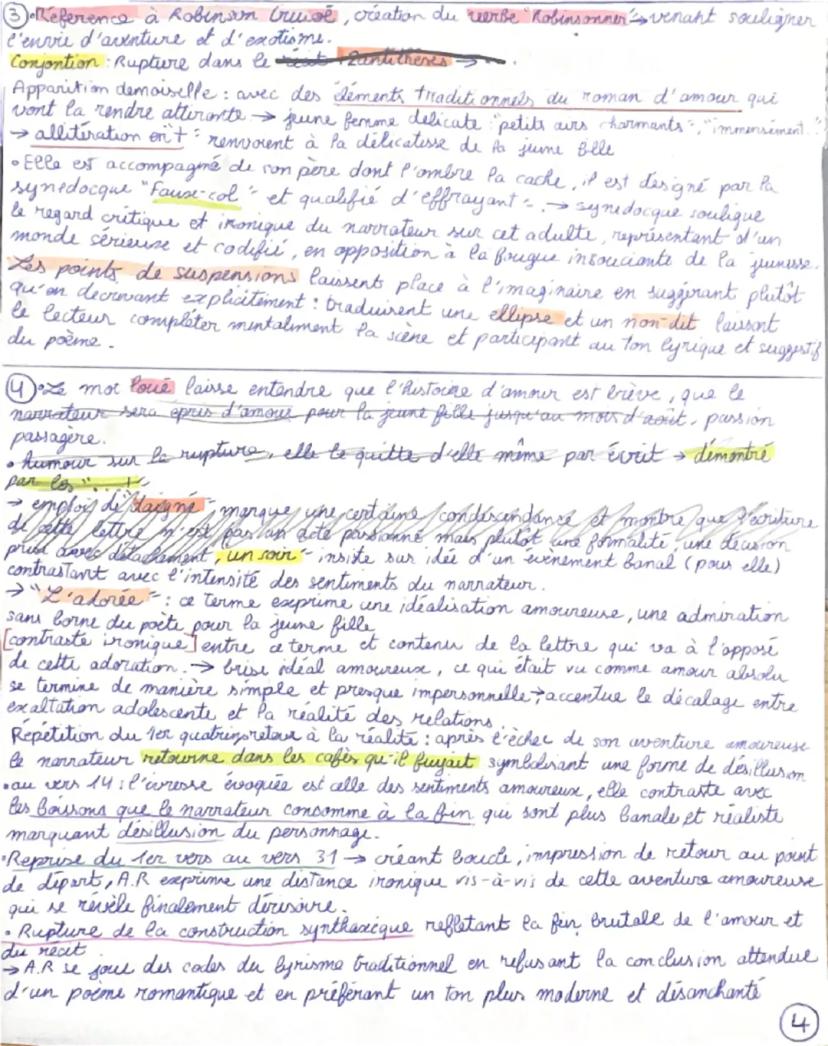 ③•Réference à Robinson Crusoé, création du verbe "Robinsonner"→venant souligner
l'envie d'aventure et d'exotisme.
Conjontion : Rupture dans le récit 2 antithèses →
Apparition demoiselle : avec des élements traditionnels du roman d'amour qui
vont la rendre attirante → jeune femme délicate "petits airs charmants", "immensément"
→ allitération en t : renvoient à la délicatesse de la jeune fille
• Elle est accompagné de son père dont l'ombre la cache, il est désigné par la
synedocque "Faux-col" et qualifié d'effrayant". → synedocque souligue
le regard critique et ironique du narrateur sur cet adulte, représentant d'un
monde sérieuse et codifié, en opposition à la fougue insouciante de la jeunesse.
Les points de suspensions laissent place à l'imaginaire en suggérant plutôt
qu'en decrivant explicitement : traduisent une ellipse et un non-dit laissant
le lecteur compléter mentalement la scène et participant au ton lyrique et suggestif
du poème.
④•Le mot loué laisse entendre que l'histoire d'amour est brève, que le
narrateur sera épris d'amour pour la jeune fille jusqu'au mois d'août, passion
passagère.
• humour sur la rupture, elle le quitte d'elle même par écrit → démontré
par les "....!"
→ emploi de "daigné" marque une certaine condescendance et montre que l'écriture
de cette lettre n'est pas un acte passionné mais plutôt une formalité, une décision
prise avec détachement, "un soir" insiste sur idée d'un évènement banal (pour elle)
contrastant avec l'intensité des sentiments du narrateur.
→ "L'adorée" : ce terme exprime une idéalisation amoureuse, une admiration
sans borne du poète pour la jeune fille
[contraste ironique] entre ce terme et contenu de la lettre qui va à l'opposé
de cette adoration. → brise idéal amoureux, ce qui était vu comme amour absolu
se termine de manière simple et presque impersonnelle → accentue le décalage entre
exaltation adolescente et la réalité des relations.
Répétition du 1er quatrin : retour à la réalité : après l'échec de son aventure amoureuse
le narrateur retourne dans les cafés qu'il fuyait symbolisant une forme de désillusion
• au vers 14 : l'ivresse évoquée est celle des sentiments amoureux, elle contraste avec
les boissons que le narrateur consomme à la fin qui sont plus banale et réaliste
marquant désillusion du personnage.
•Reprise du 1er vers au vers 31 → créant boucle, impression de retour au point
de départ, A.R exprime une distance ironique vis-à-vis de cette aventure amoureuse
qui se révèle finalement dérisoire.
• Rupture de la construction synthaxique reflétant la fin brutale de l'amour et
du récit
→ A.R se joue des codes du lyrisme traditionnel en refusant la conclusion attendue
d'un poème romantique et en préférant un ton plus moderne et désanchanté
④